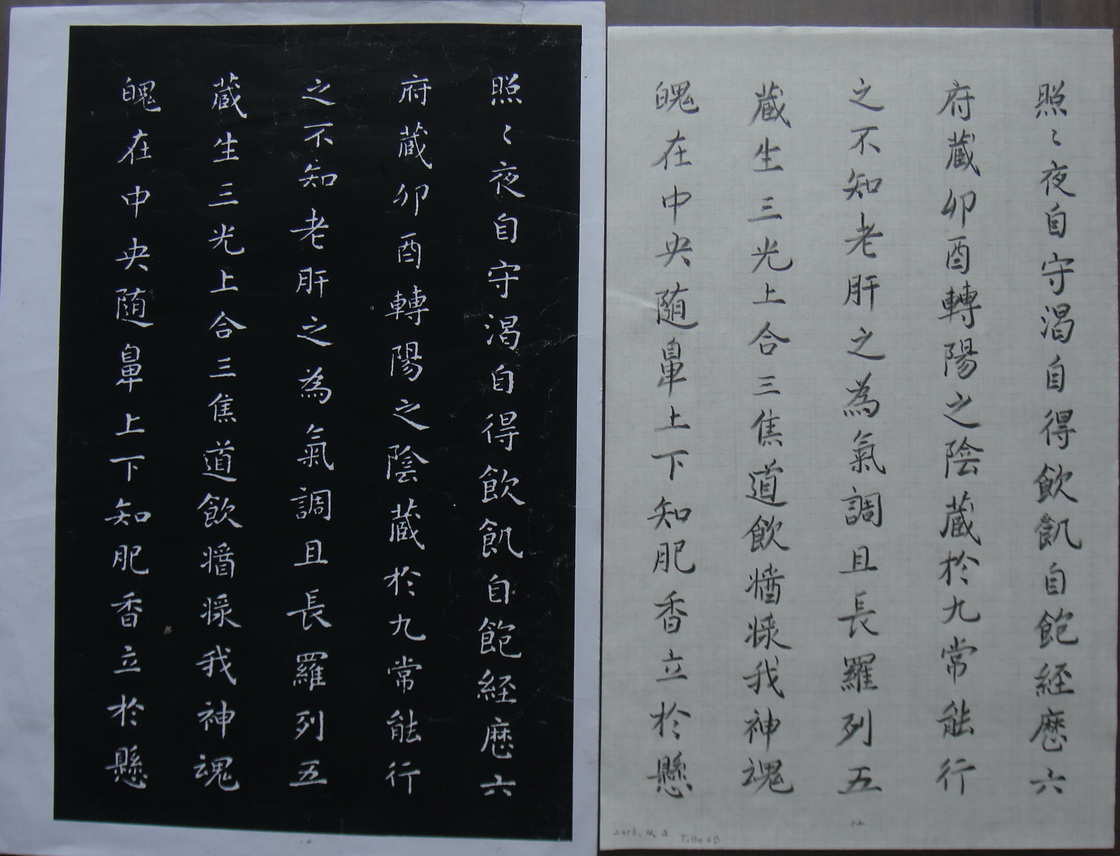 照〻夜自守渴自得飲飢自飽経歷六
府蔵卯酉轉陽之陰蔵於九常能行
之不知老肝之為氣調且長羅列五
蔵生三光上合三焦道飲醬漿我神魂
魄在中央随鼻上下知肥香立於懸
照〻夜自守渴自得飲飢自飽経歷六
府蔵卯酉轉陽之陰蔵於九常能行
之不知老肝之為氣調且長羅列五
蔵生三光上合三焦道飲醬漿我神魂
魄在中央随鼻上下知肥香立於懸